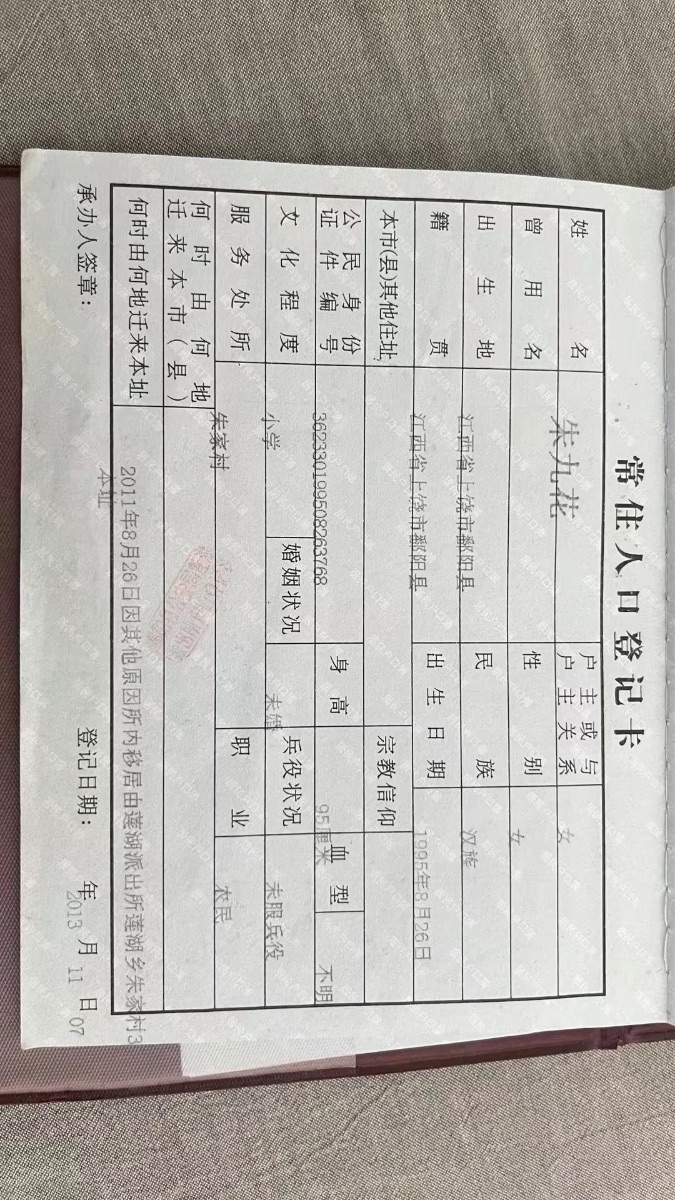 常住人口登记卡
姓名 朱九花 户主或与户主关系 女
曾用名 性别 女
出生地 江西省上饶市鄱阳县 民族 汉族
籍贯 江西省上饶市鄱阳县 出生日期 1995年8月26日
本市(县)其他住址 宗教信仰
公民身份证件编号 362330199508263768 身高 95厘米 血型 不明
文化程度 小学 婚姻状况 未婚 兵役状况 未服兵役
服务处所 朱家村 职业 农民
何时由何地迁来本市(县)
何时由何地迁来本址 2011年8月26日因其他原因所内移居由莲湖派出所莲湖乡朱家村3
本址
承办人签章: 登记日期: 2013年11月07日